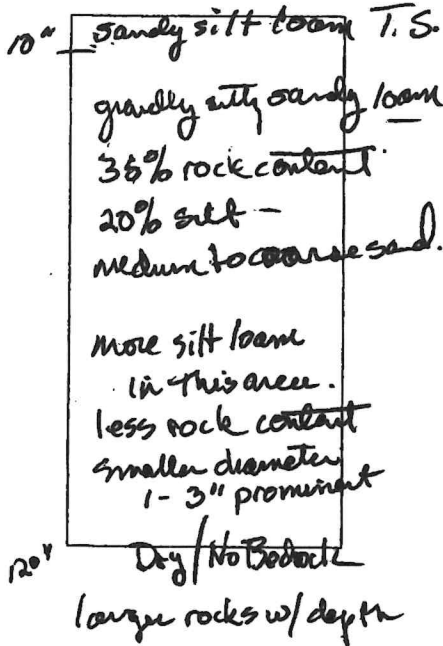 10" sandy silt loam T.S.
gravelly silty sandy loam
35% rock content.
20% silt -
medium to coarse sand.
more silt loam
in this area.
less rock content
smaller diameter
1 - 3" prominent
120" Dry / No Bedrock
larger rocks w/ depth